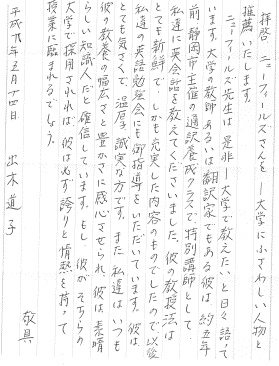 拝啓 ニューフィールズさんを 一大学にふさわしい人物と
推薦いたします。
ニューフィールズ先生は 是非一大学で教えたいと日々語って
います。大学の教師あるいは翻訳家でもある彼は、約五年
前 静岡市主催の通訳養成クラスで、特別講師として
私達に英会話を教えてくださいました。彼の教授法は
とても新鮮で しかも充実した内容のものでしたので、以後
私達の英語勉強会にも御指導をいただいています。彼は
とても気さくで、温厚、誠実な方です。また 私達は いつも
彼の教養の幅広さと豊かさに感心させられ、彼は素晴
らしい知識人だと確信しています。もし 彼が そちらの
大学で採用されれば、彼は必ず誇りと情熱を持って
授業に臨まれるでしょう。
敬具
平成九年五月十四日 出木道子